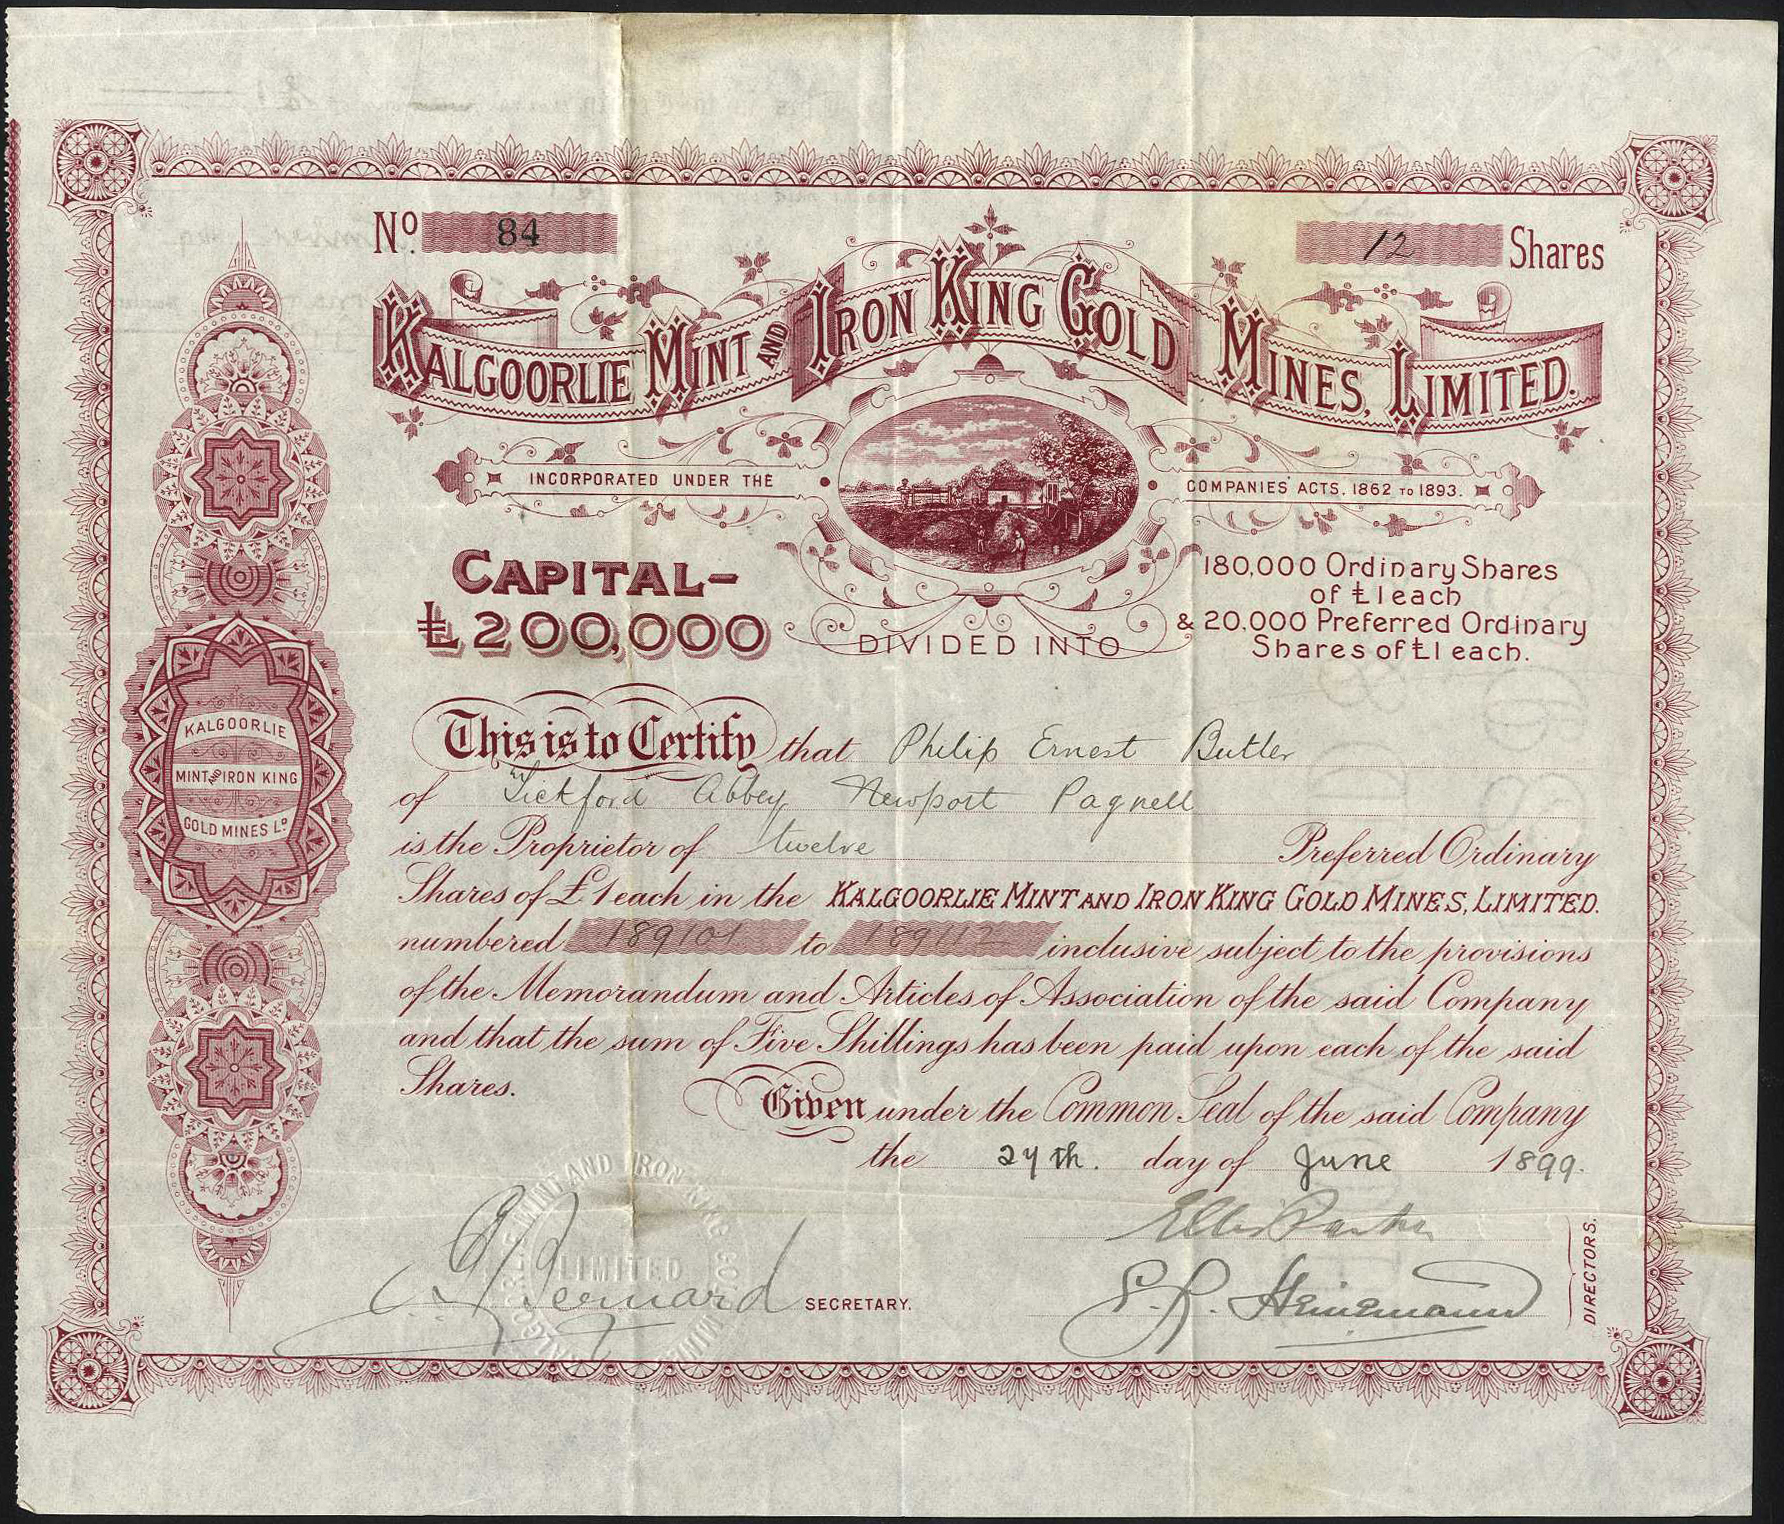 No. 84
12 Shares
KALGOORLIE MINT AND IRON KING GOLD MINES, LIMITED.
INCORPORATED UNDER THE COMPANIES' ACTS, 1862 TO 1893.
CAPITAL-
£200,000
DIVIDED INTO
180,000 Ordinary Shares
of £1 each
& 20,000 Preferred Ordinary
Shares of £1 each.
KALGOORLIE
MINT AND IRON KING
GOLD MINES LD
This is to Certify that Philip Ernest Butler
of Tickford Abbey Newport Pagnell
is the Proprietor of twelve Preferred Ordinary
Shares of £1 each in the KALGOORLIE MINT AND IRON KING GOLD MINES, LIMITED.
numbered 189101 to 189112 inclusive subject to the provisions
of the Memorandum and Articles of Association of the said Company
and that the sum of Five Shillings has been paid upon each of the said
Shares.
Given under the Common Seal of the said Company
the 27th. day of June 1899.
Ellis Parker
LIMITED
SECRETARY.
E. R. Heinemann
DIRECTORS.